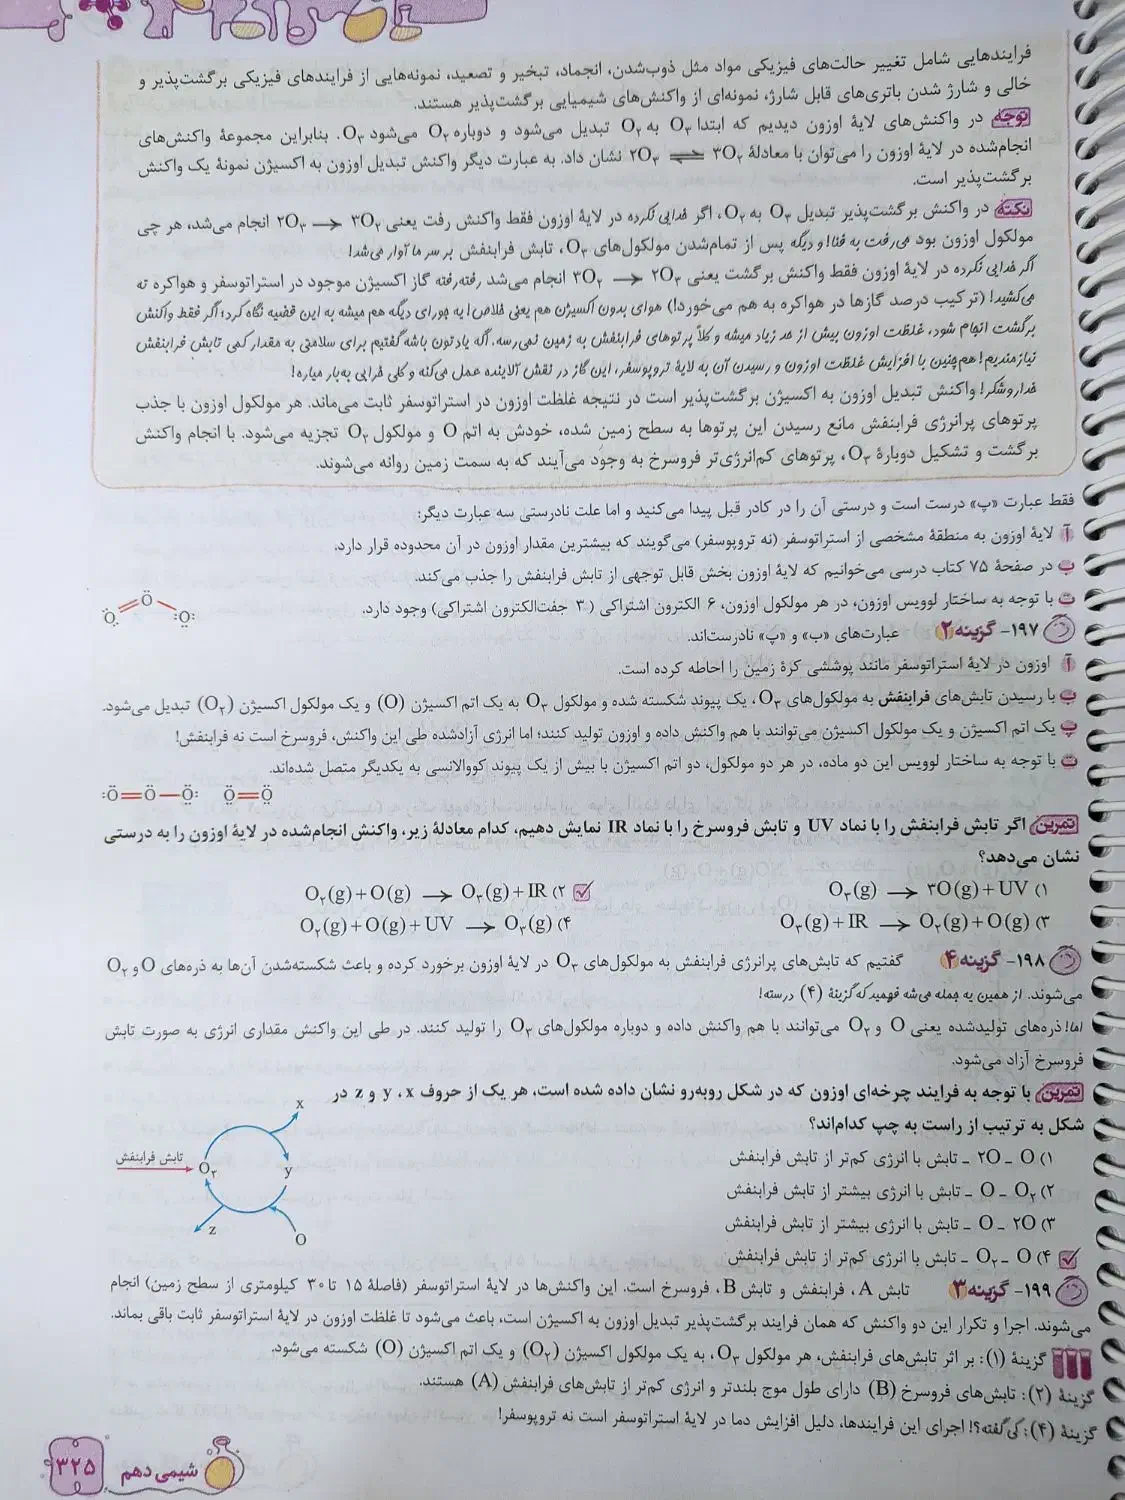 فرایندهایی شامل تغییر حالت‌های فیزیکی مواد مثل ذوب‌شدن، انجماد، تبخیر و تصعید، نمونه‌هایی از فرایندهای فیزیکی برگشت‌پذیر و
خالی و شارژ شدن باتری‌های قابل شارژ، نمونه‌ای از واکنش‌های شیمیایی برگشت‌پذیر هستند.
توجه در واکنش‌های لایهٔ اوزون دیدیم که ابتدا O₃ به O₂ تبدیل می‌شود و دوباره O₂ می‌شود O₃. بنابراین مجموعهٔ واکنش‌های
انجام‌شده در لایهٔ اوزون را می‌توان با معادلهٔ ۲O₃ ⇌ ۳O₂ نشان داد. به عبارت دیگر واکنش تبدیل اوزون به اکسیژن نمونهٔ یک واکنش
برگشت‌پذیر است.
نکته در واکنش برگشت‌پذیر تبدیل O₃ به O₂، اگر خدایی نکرده در لایهٔ اوزون فقط واکنش رفت یعنی ۲O₃ → ۳O₂ انجام می‌شد، هر چی
مولکول اوزون بود می‌رفت به فنا! و دیگه پس از تمام‌شدن مولکول‌های O₃، تابش فرابنفش بر سر ما آوار می‌شد!
اگر خدایی نکرده در لایهٔ اوزون فقط واکنش برگشت یعنی ۳O₂ → ۲O₃ انجام می‌شد رفته‌رفته گاز اکسیژن موجود در استراتوسفر و هواکره ته
می‌کشید! (ترکیب درصد گازها در هواکره به هم می‌خورد!) هوای بدون اکسیژن هم یعنی خلاص! یه جورای دیگه هم میشه به این قضیه نگاه کرد؛ اگر فقط واکنش
برگشت انجام شود، غلظت اوزون بیش از حد زیاد میشه و کلاً پرتوهای فرابنفش به زمین نمی‌رسه. اگه یادتون باشه گفتیم برای سلامتی به مقدار کمی تابش فرابنفش
نیازمندیم! هم‌چنین با افزایش غلظت اوزون و رسیدن آن به لایهٔ تروپوسفر، این گاز در نقش آلاینده عمل می‌کنه و کلی خرابی به‌بار میاره!
خدا رو شکر! واکنش تبدیل اوزون به اکسیژن برگشت‌پذیر است در نتیجه غلظت اوزون در استراتوسفر ثابت می‌ماند. هر مولکول اوزون با جذب
پرتوهای پرانرژی فرابنفش مانع رسیدن این پرتوها به سطح زمین شده، خودش به اتم O و مولکول O₂ تجزیه می‌شود. با انجام واکنش
برگشت و تشکیل دوبارهٔ O₃، پرتوهای کم‌انرژی‌تر فروسرخ به وجود می‌آیند که به سمت زمین روانه می‌شوند.
فقط عبارت «پ» درست است و درستی آن را در کادر قبل پیدا می‌کنید و اما علت نادرستی سه عبارت دیگر:
آ لایهٔ اوزون به منطقهٔ مشخصی از استراتوسفر (نه تروپوسفر) می‌گویند که بیشترین مقدار اوزون در آن محدوده قرار دارد.
ب در صفحهٔ ۷۵ کتاب درسی می‌خوانیم که لایهٔ اوزون بخش قابل توجهی از تابش فرابنفش را جذب می‌کند.
ت با توجه به ساختار لوویس اوزون، در هر مولکول اوزون، ۶ الکترون اشتراکی (۳ جفت‌الکترون اشتراکی) وجود دارد.
O O O
۱۹۷- گزینه ۲ عبارت‌های «ب» و «پ» نادرست‌اند.
آ اوزون در لایهٔ استراتوسفر مانند پوششی کرهٔ زمین را احاطه کرده است.
ب با رسیدن تابش‌های فرابنفش به مولکول‌های O₃، یک پیوند شکسته شده و مولکول O₃ به یک اتم اکسیژن (O) و یک مولکول اکسیژن (O₂) تبدیل می‌شود.
پ یک اتم اکسیژن و یک مولکول اکسیژن می‌توانند با هم واکنش داده و اوزون تولید کنند؛ اما انرژی آزادشده طی این واکنش، فروسرخ است نه فرابنفش!
ت با توجه به ساختار لوویس این دو ماده، در هر دو مولکول، دو اتم اکسیژن با بیش از یک پیوند کووالانسی به یکدیگر متصل شده‌اند.
:Ö=Ö—Ö: Ö=Ö
تمرین اگر تابش فرابنفش را با نماد UV و تابش فروسرخ را با نماد IR نمایش دهیم، کدام معادلهٔ زیر، واکنش انجام‌شده در لایهٔ اوزون را به درستی
نشان می‌دهد؟
۱) O₃(g) → ۳O(g) + UV
۲) O₂(g) + O(g) → O₃(g) + IR
۳) O₃(g) + IR → O₂(g) + O(g)
۴) O₂(g) + O(g) + UV → O₃(g)
۱۹۸- گزینه ۴ گفتیم که تابش‌های پرانرژی فرابنفش به مولکول‌های O₃ در لایهٔ اوزون برخورد کرده و باعث شکسته‌شدن آن‌ها به ذره‌های O و O₂
می‌شوند. از همین یه جمله می‌شه فهمید که گزینهٔ (۴) درسته!
اما! ذره‌های تولیدشده یعنی O و O₂ می‌توانند با هم واکنش داده و دوباره مولکول‌های O₃ را تولید کنند. در طی این واکنش مقداری انرژی به صورت تابش
فروسرخ آزاد می‌شود.
تمرین با توجه به فرایند چرخه‌ای اوزون که در شکل روبه‌رو نشان داده شده است، هر یک از حروف x، y و z در
شکل به ترتیب از راست به چپ کدام‌اند؟
۱) O - ۲O - تابش با انرژی کم‌تر از تابش فرابنفش
۲) O₂ - O - تابش با انرژی بیشتر از تابش فرابنفش
۳) ۲O - O - تابش با انرژی بیشتر از تابش فرابنفش
۴) O - O₂ - تابش با انرژی کم‌تر از تابش فرابنفش
x
تابش فرابنفش
O₃
y
z
O
۱۹۹- گزینه ۳ تابش A، فرابنفش و تابش B، فروسرخ است. این واکنش‌ها در لایهٔ استراتوسفر (فاصلهٔ ۱۵ تا ۳۰ کیلومتری از سطح زمین) انجام
می‌شوند. اجرا و تکرار این دو واکنش که همان فرایند برگشت‌پذیر تبدیل اوزون به اکسیژن است، باعث می‌شود تا غلظت اوزون در لایهٔ استراتوسفر ثابت باقی بماند.
گزینهٔ (۱): بر اثر تابش‌های فرابنفش، هر مولکول O₃، به یک مولکول اکسیژن (O₂) و یک اتم اکسیژن (O) شکسته می‌شود.
گزینهٔ (۲): تابش‌های فروسرخ (B) دارای طول موج بلندتر و انرژی کم‌تر از تابش‌های فرابنفش (A) هستند.
گزینهٔ (۴): کی گفته؟! اجرای این فرایندها، دلیل افزایش دما در لایهٔ استراتوسفر است نه تروپوسفر!
شیمی دهم
۳۲۵